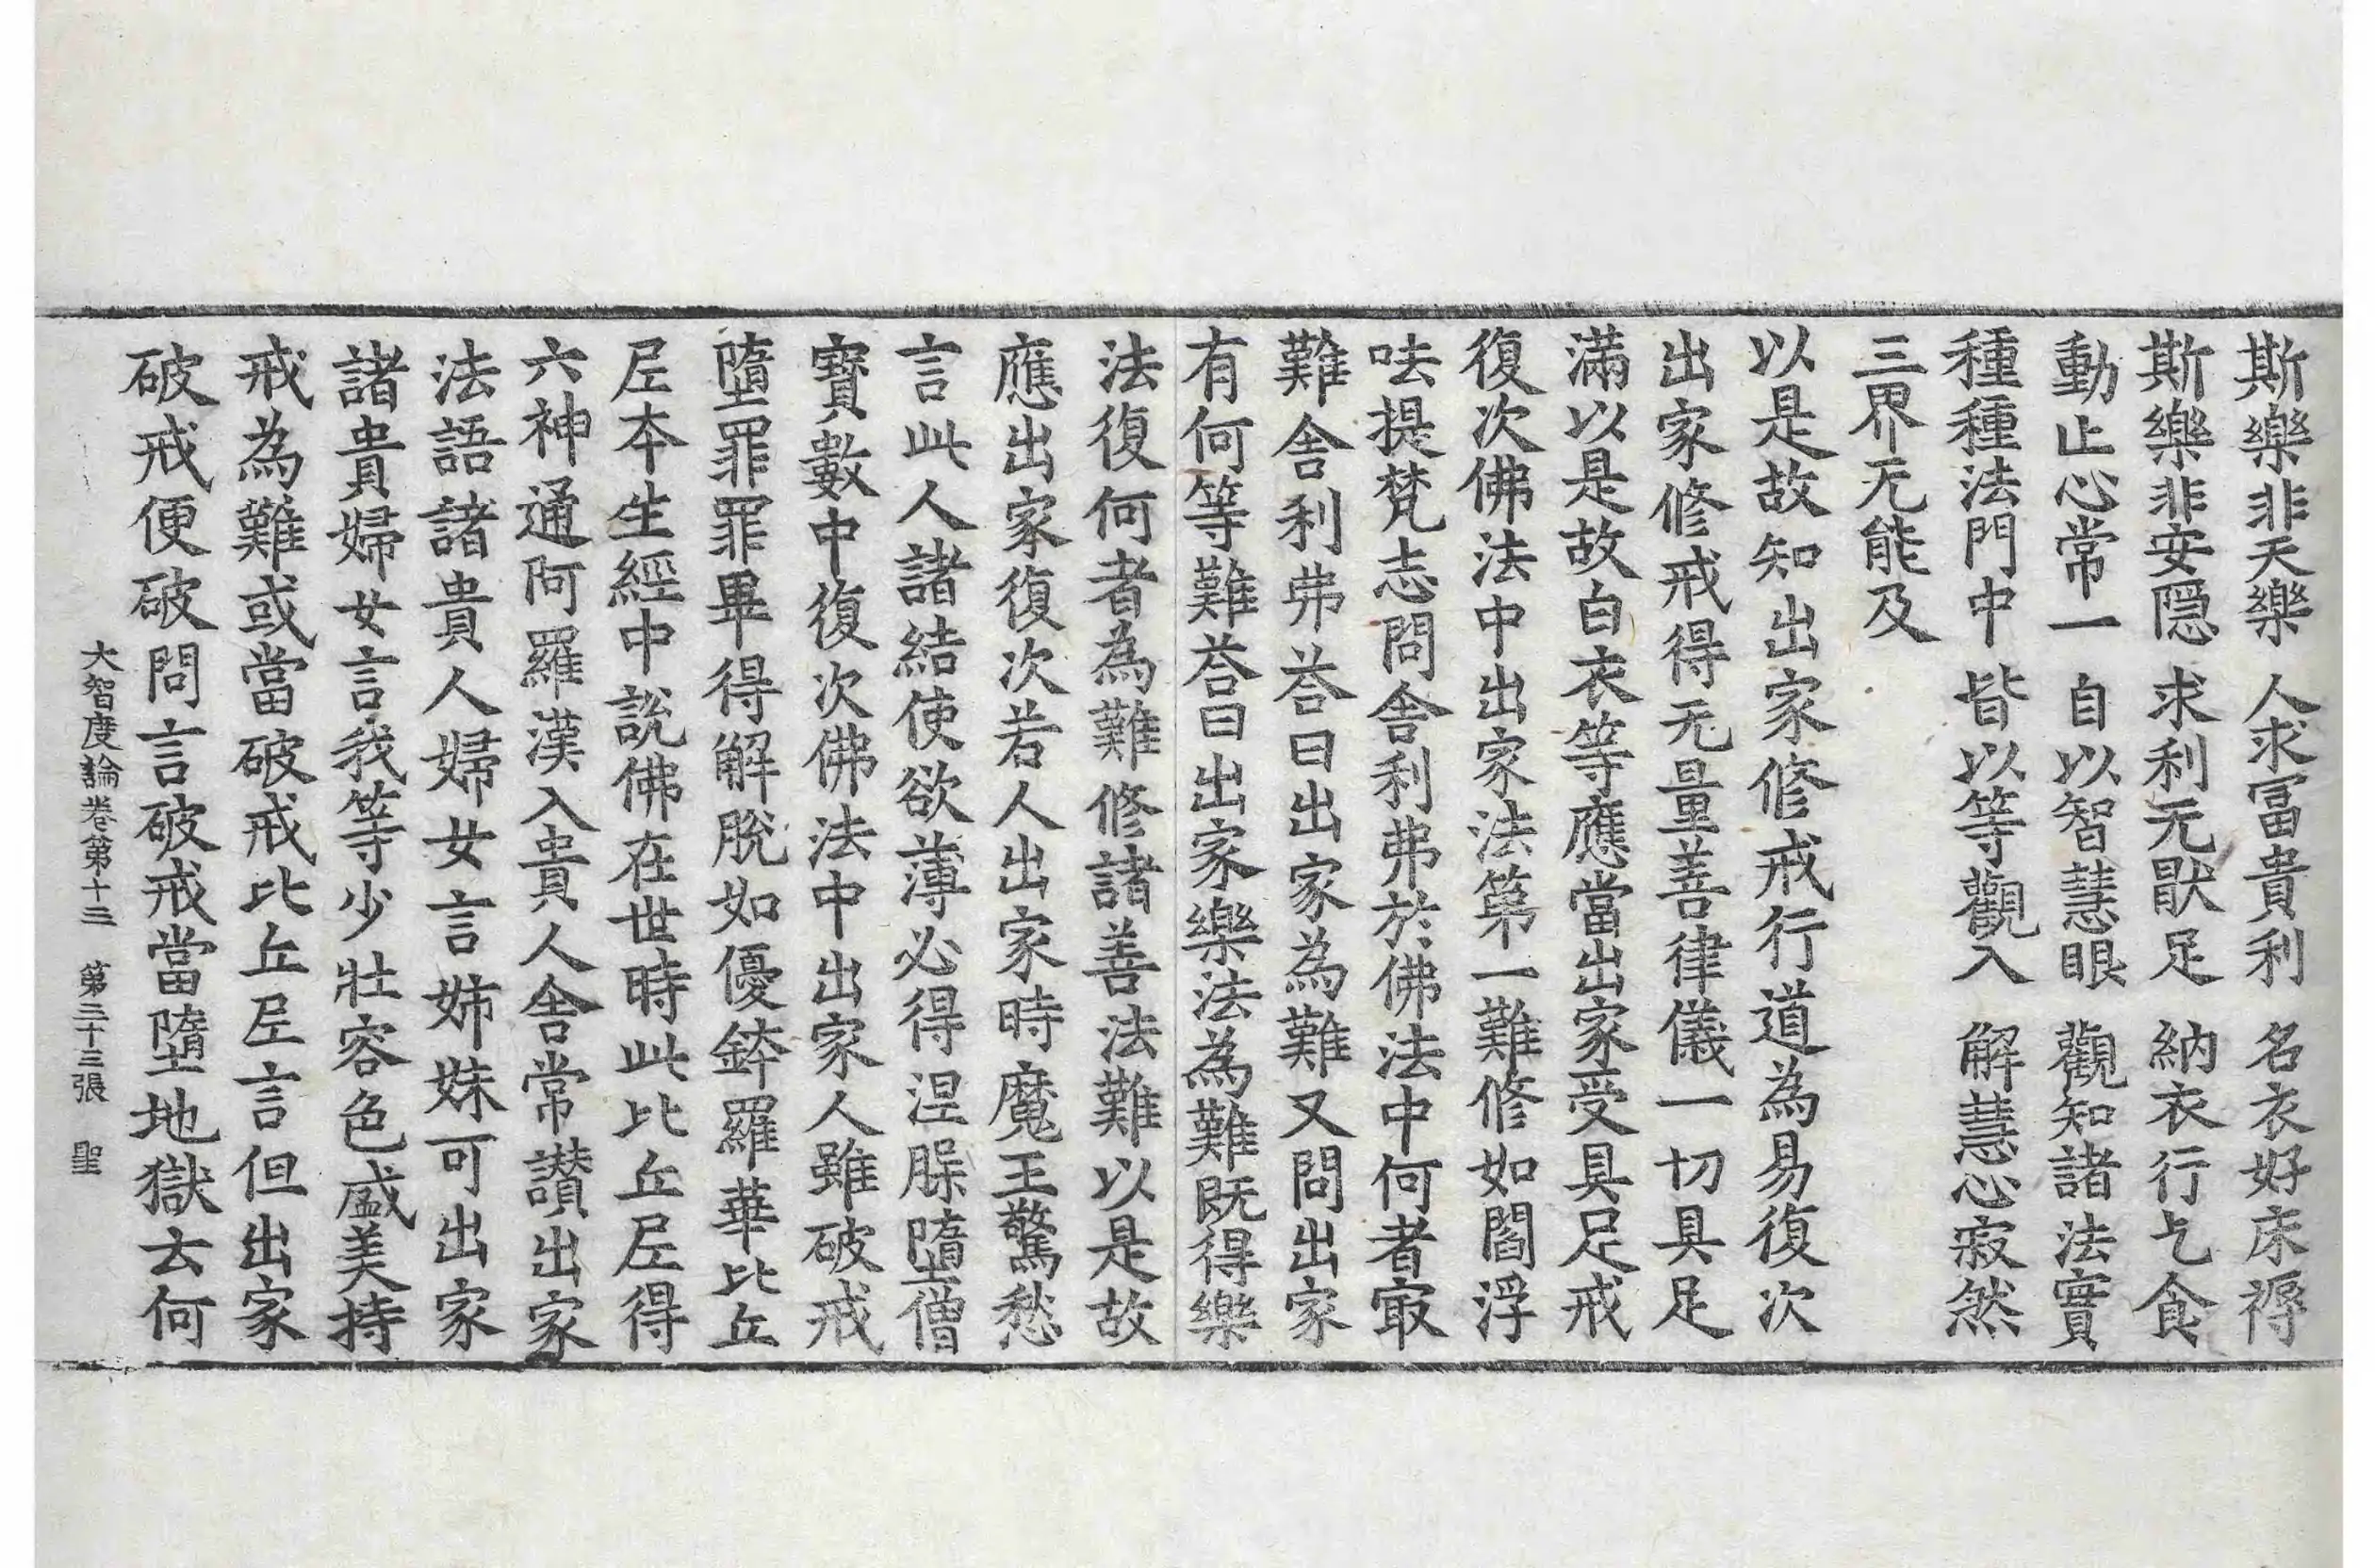 斯樂非天樂 人求冨貴利 名衣好床褥
斯樂非安隠 求利无猒足 納衣行乞食
動止心常一 自以智慧眼 觀知諸法實
種種法門中 皆以等觀入 解慧心寂然
三界无能及
以是故知出家修戒行道為易復次
出家修戒得无量善律儀一切具足
滿以是故白衣等應當出家受具足戒
復次佛法中出家法第一難修如閻浮
呿提梵志問舍利弗於佛法中何者㝡
難舍利弗荅曰出家為難又問出家
有何等難荅曰出家樂法為難既得樂
法復何者為難修諸善法難以是故
應出家復次若人出家時魔王驚愁
言此人諸結使欲薄必得涅槃墮僧
寶數中復次佛法中出家人雖破戒
墮罪罪畢得解脫如優鉢羅華比丘
尼本生經中說佛在世時此比丘尼得
六神通阿羅漢入貴人舍常讃出家
法語諸貴人婦女言姊妹可出家
諸貴婦女言我等少壯容色盛美持
戒為難或當破戒比丘尼言但出家
破戒便破問言破戒當墮地獄云何
大智度論卷第十三 第三十三張 聖